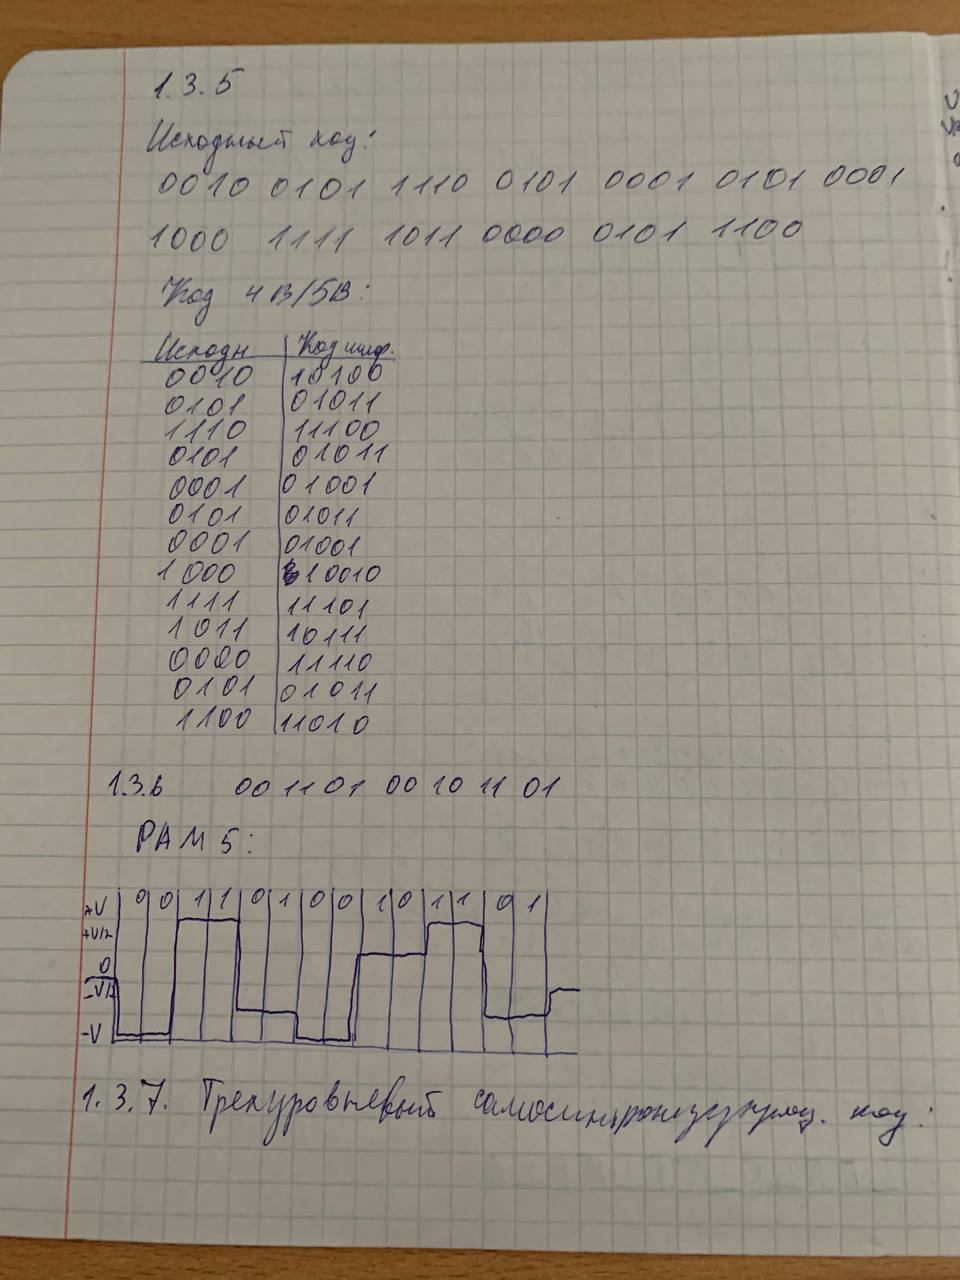 1.3.5
Исходный код:
0010 0101 1110 0101 0001 0101 0001
1000 1111 1011 0000 0101 1100
Код 4B/5B:
Исходн Код шифр.
0010 10100
0101 01011
1110 11100
0101 01011
0001 01001
0101 01011
0001 01001
1000 10010
1111 11101
1011 10111
0000 11110
0101 01011
1100 11010
1.3.6 00 11 01 00 10 11 01
PAM 5:
+V 0 0 1 1 0 1 0 0 1 0 1 1 0 1
+V/2
0
-V/2
-V
1.3.7. Трехуровневый код: